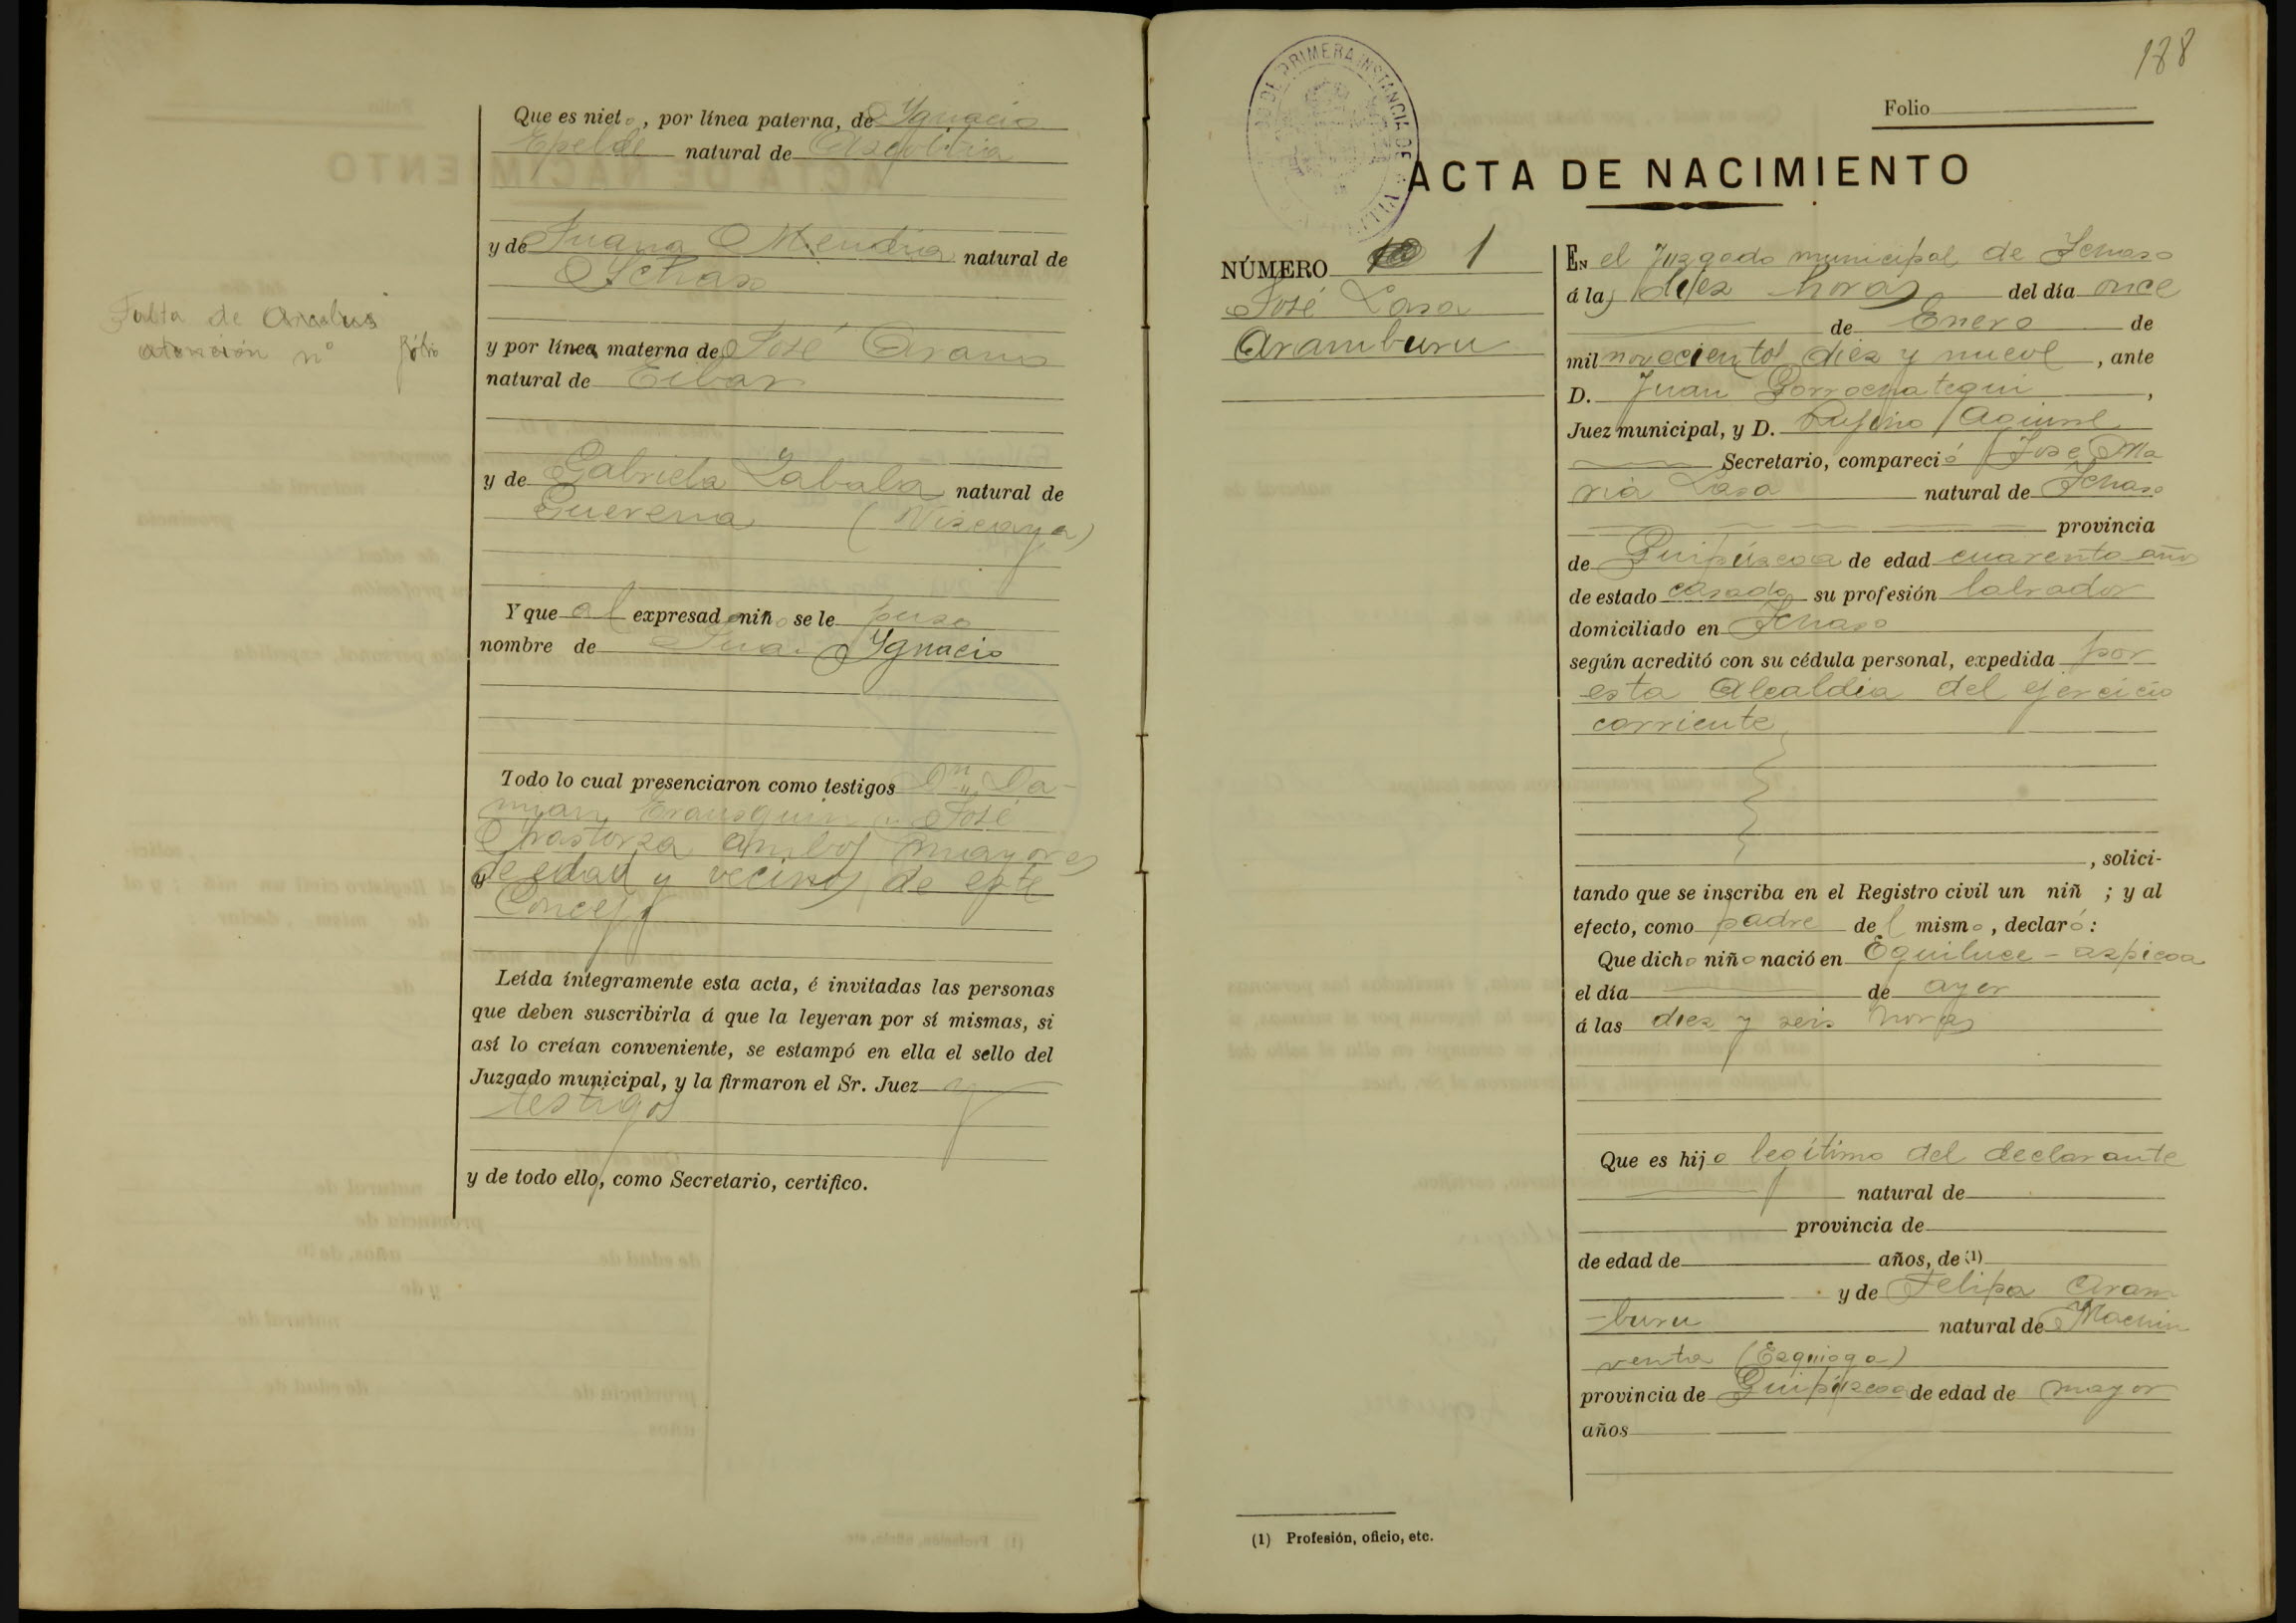 Que es nieto, por línea paterna, de Ygnacio
Epelde natural de Azcoitia
y de Juana Mendia natural de
Ichaso
Falta de
atención nº folio
y por línea materna de José Arana
natural de Eibar
y de Gabriela Zabala natural de
Guerena (Vizcaya)
Y que al expresado niño se le puso
nombre de Juan Ygnacio
Todo lo cual presenciaron como testigos Dn Da-
mian Erausquin y José
ambos mayores
de edad y vecinos de este
Concejo
Leída íntegramente esta acta, é invitadas las personas
que deben suscribirla á que la leyeran por sí mismas, si
así lo creían conveniente, se estampó en ella el sello del
Juzgado municipal, y la firmaron el Sr. Juez y
testigos
y de todo ello, como Secretario, certifico.
188
Folio
DE PRIMERA INSTANCIA DE
ACTA DE NACIMIENTO
NÚMERO 1
José Lasa
Aramburu
EN el Juzgado municipal de Ichaso
á las diez horas del día once
de Enero de
mil novecientos diez y nueve, ante
D. Juan Gorrochategui,
Juez municipal, y D. Rufino Aguirre
Secretario, compareció José Ma
ria Lasa natural de Ichaso
provincia
de Guipúzcoa de edad cuarenta años
de estado casado su profesión labrador
domiciliado en Ichaso
según acreditó con su cédula personal, expedida por
esta Alcaldia del ejercicio
corriente
, solici-
tando que se inscriba en el Registro civil un niñ ; y al
efecto, como padre del mismo, declaró:
Que dicho niño nació en Eguiluce-azpicoa
el día de ayer
á las diez y seis horas
Que es hijo legítimo del declarante
natural de
provincia de
de edad de años, de (1)
y de Felipa Aram
-buru natural de Machin
venta (Ezquioga)
provincia de Guipúzcoa de edad de mayor
años
(1) Profesión, oficio, etc.